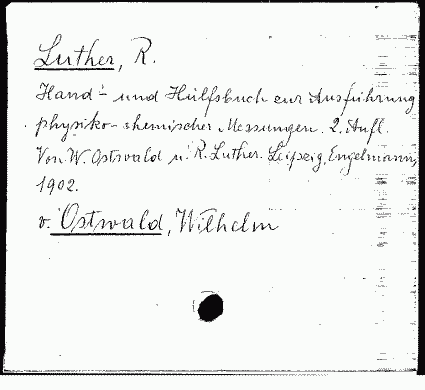 Luther, R.
Hand- und Hülfsbuch zur Ausführung
physiko-chemischer Messungen. 2. Aufl.
Von W. Ostwald u. R. Luther. Leipzig, Engelmann,
1902.
v. Ostwald, Wilhelm